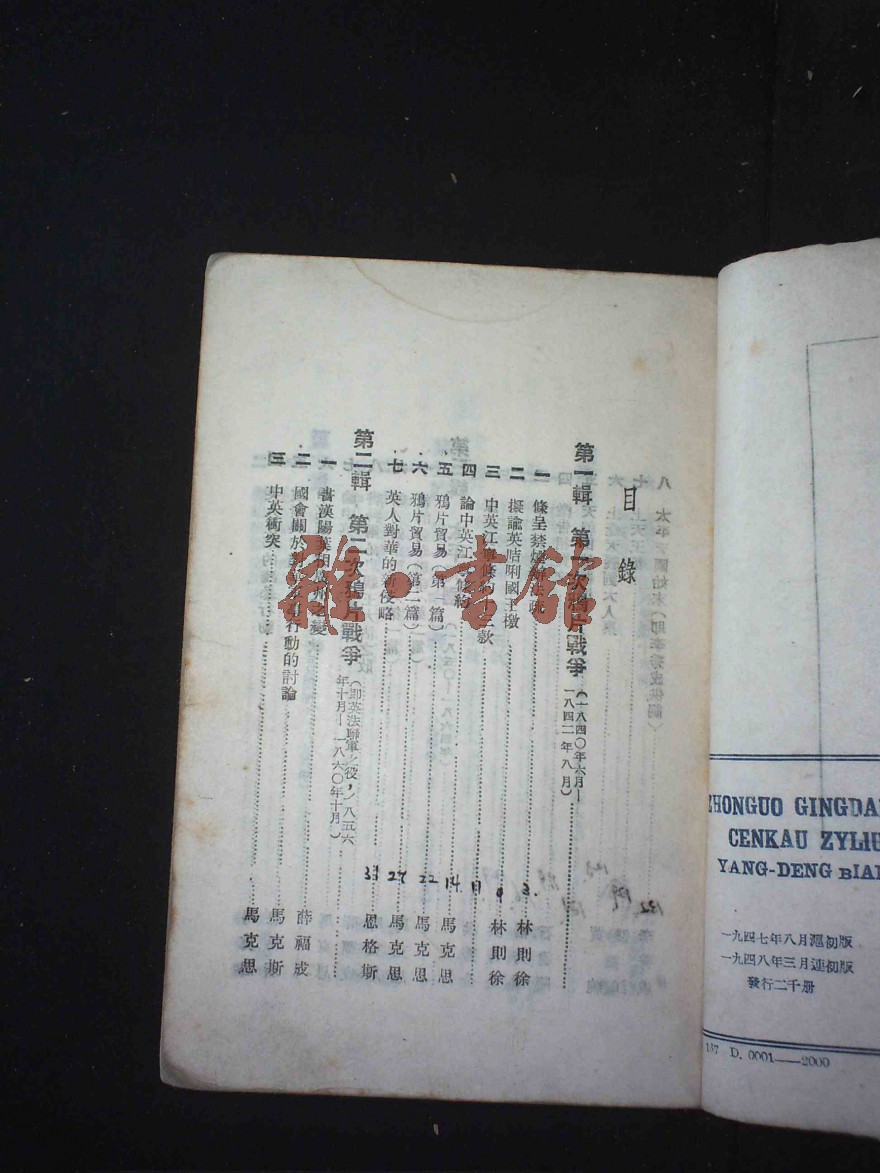 目錄
第一輯 第一次鴉片戰爭(一八四〇年六月—一八四二年八月)
一 條呈禁烟辦法疏 3. 林則徐
二 擬諭英咭唎國王檄 林則徐
三 中英江寧條約十三款
四 論中英江寧條約
五 鴉片貿易(第一篇) 14 馬克思
六 鴉片貿易(第二篇) 22 馬克思
27 馬克思
七 英人對華的新侵略 33 恩格斯
第二輯 第二次鴉片戰爭(即英法聯軍之役,一八五六年十月—一八六〇年十月)
一 書漢陽葉相廣州之變 薛福成
二 國會關於對 行動的討論 馬克斯
三 中英衝突 馬克思
八 太平天國始末(即李秀成供詞)
132
雜·書館
HONGUO GINGDA
CENKAU ZYLIU
YANG-DENG BIA
一九四七年八月滬初版
一九四八年三月連初版
發行二千册
137 D. 0001——2000